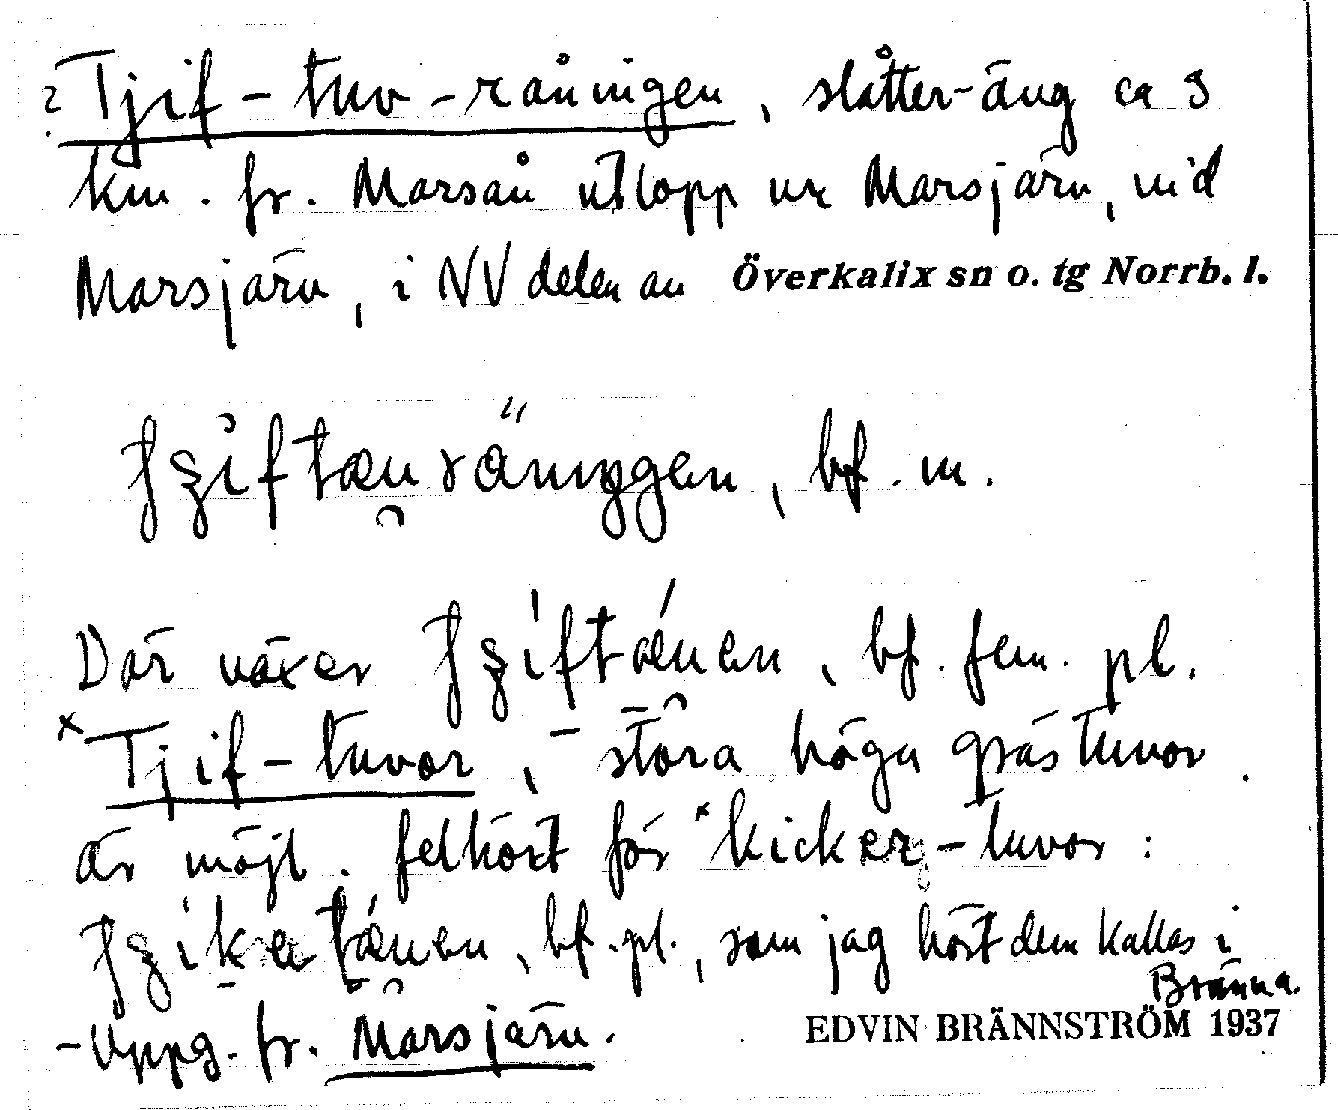 ? Tjif-tuv-råningen, slåtter-äng ca 3
km. fr. Marsån utlopp ur Marsjärv, vid
Marsjärv, i NV delen av Överkalix sn o. tg Norrb. l.
bf. m.
Där växer bf. fem. pl.
× Tjif-tuvor, - stora höga grästuvor.
är möjl. felhört för ×kicker-tuvor:
bf. pl., som jag hört dem kallas i
Bränna.
- Uppg. fr. Marsjärv. EDVIN BRÄNNSTRÖM 1937